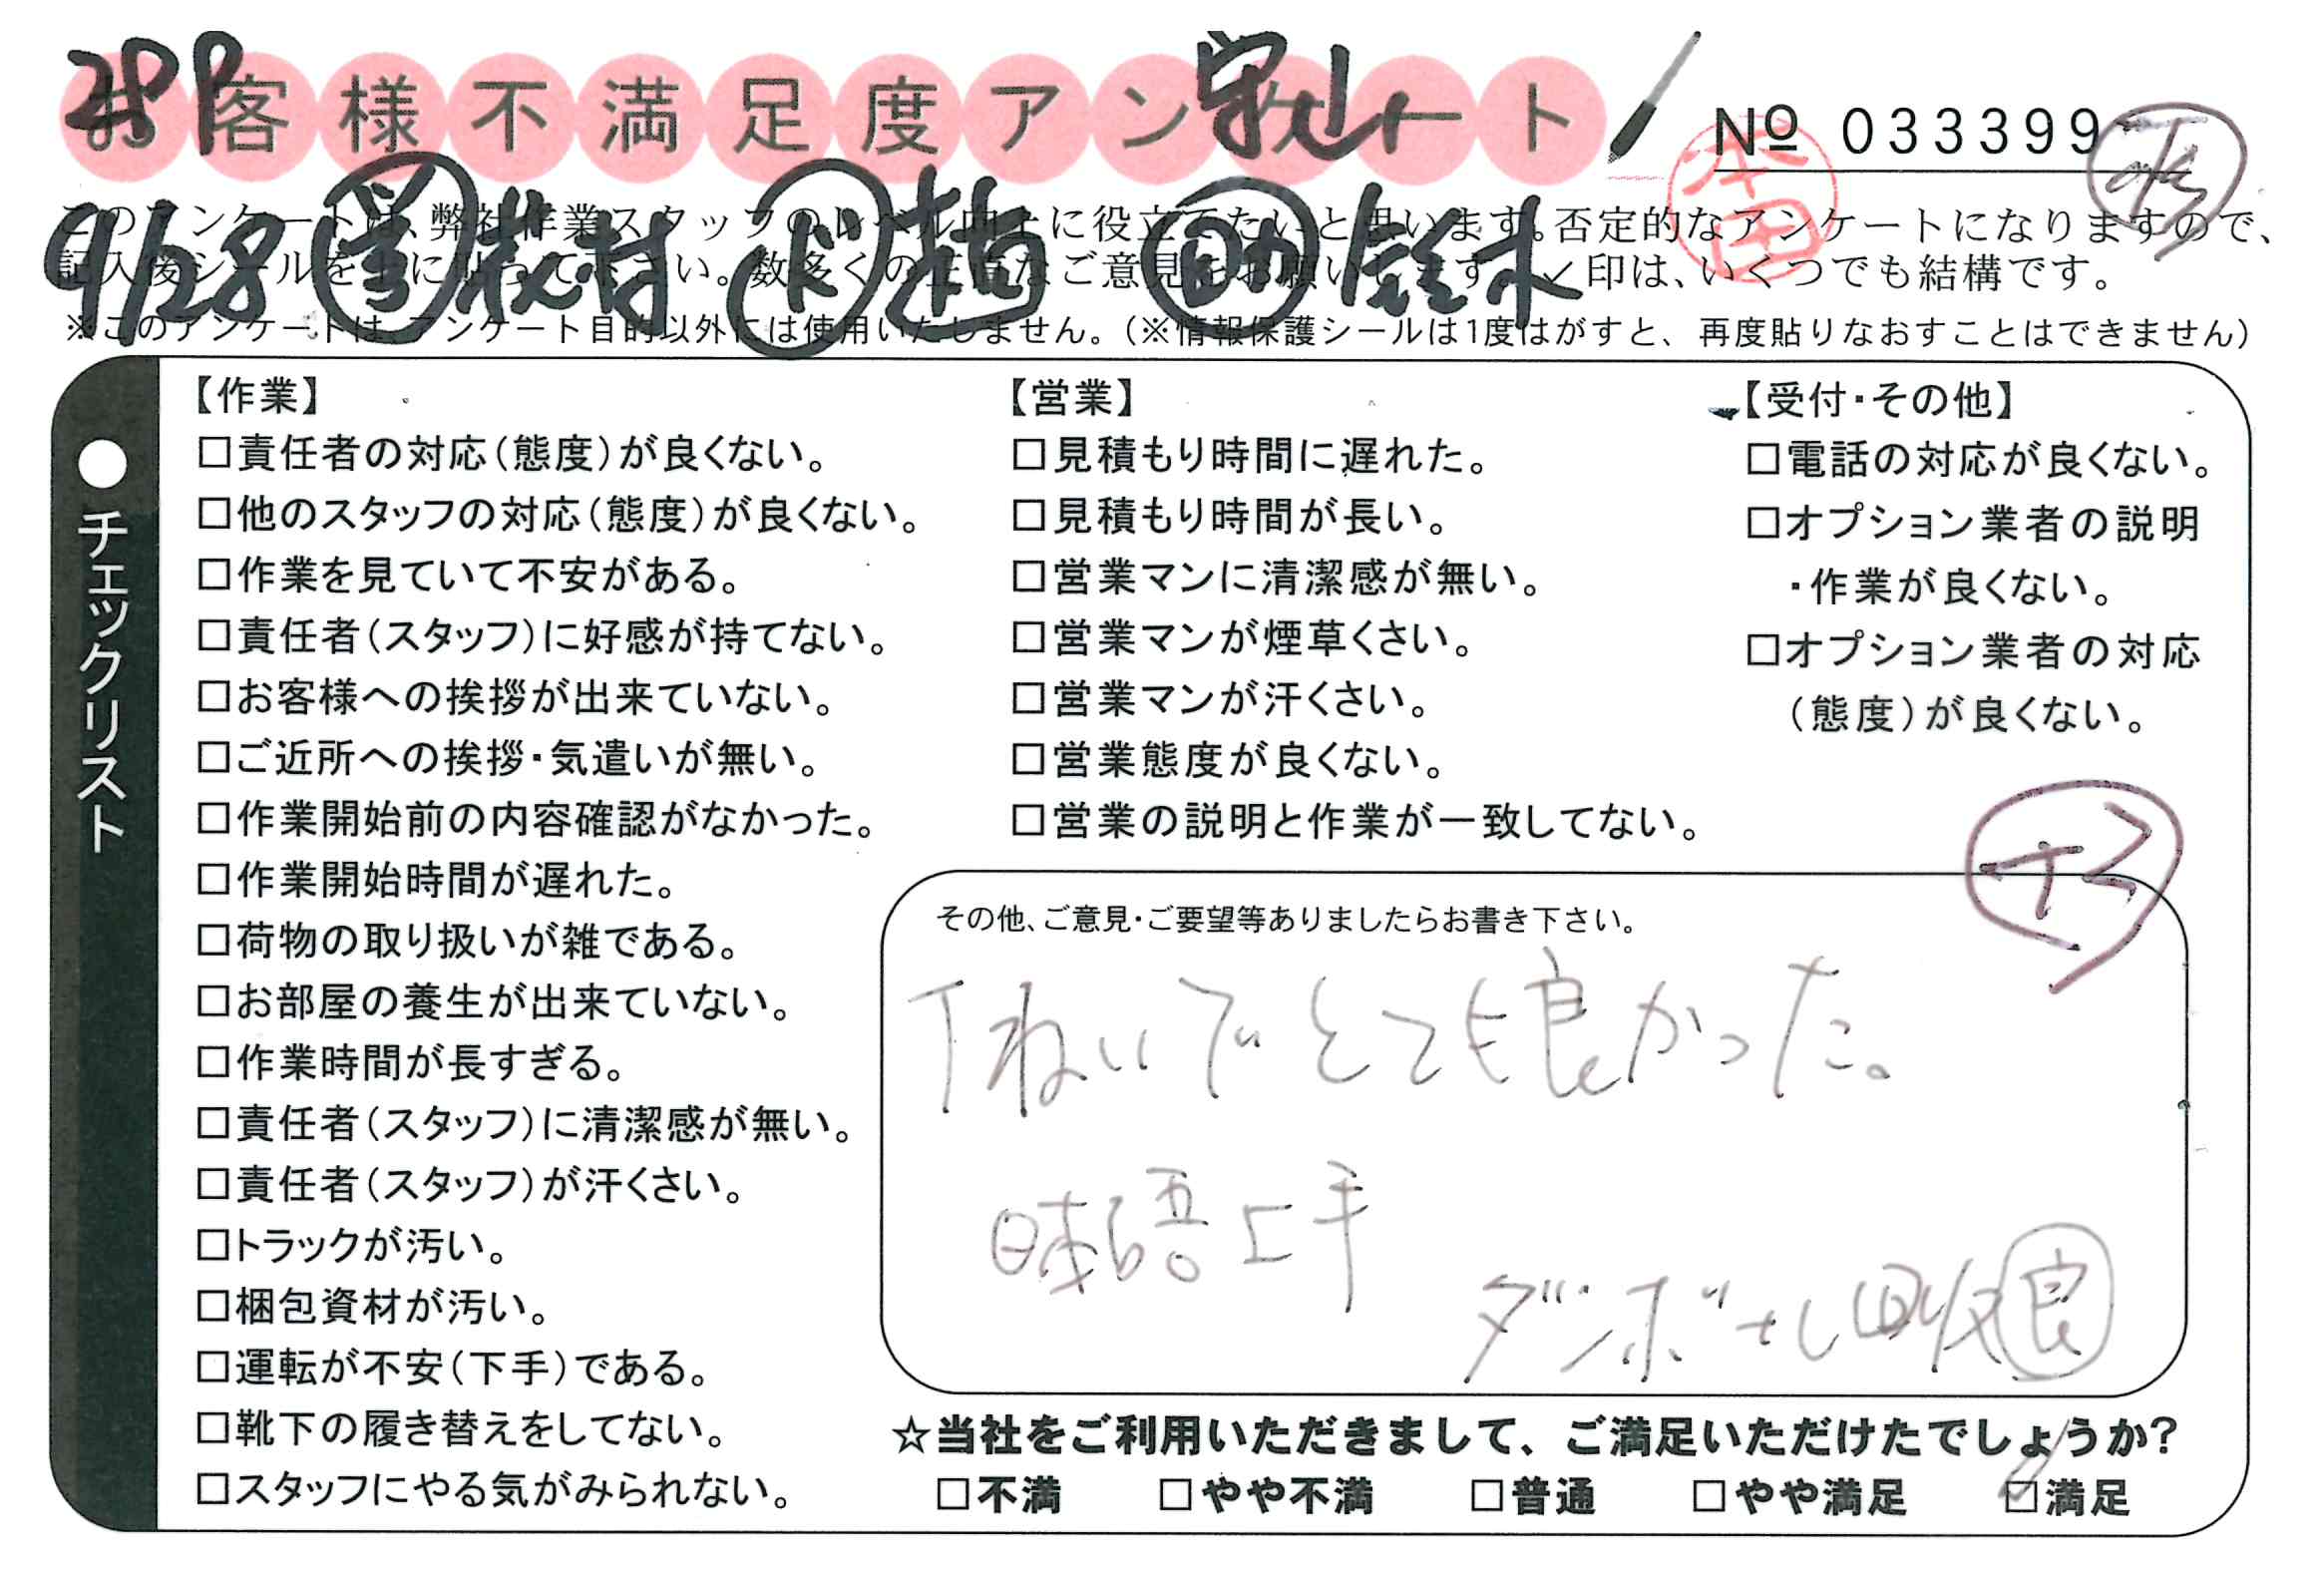 28P 守山
お客様不満足度アンケート
№ 033399
本田
このアンケートは、弊社作業スタッフのレベル向上に役立てたいと思います。否定的なアンケートになりますので、
記入後シールを上に貼って下さい。数多くの正直なご意見をお願いします。✓印は、いくつでも結構です。
9/28 営 ド 趙 助 鈴木
※このアンケートは、アンケート目的以外には使用いたしません。(※情報保護シールは1度はがすと、再度貼りなおすことはできません)
●チェックリスト
【作業】
□責任者の対応(態度)が良くない。
□他のスタッフの対応(態度)が良くない。
□作業を見ていて不安がある。
□責任者(スタッフ)に好感が持てない。
□お客様への挨拶が出来ていない。
□ご近所への挨拶・気遣いが無い。
□作業開始前の内容確認がなかった。
□作業開始時間が遅れた。
□荷物の取り扱いが雑である。
□お部屋の養生が出来ていない。
□作業時間が長すぎる。
□責任者(スタッフ)に清潔感が無い。
□責任者(スタッフ)が汗くさい。
□トラックが汚い。
□梱包資材が汚い。
□運転が不安(下手)である。
□靴下の履き替えをしてない。
□スタッフにやる気がみられない。
【営業】
□見積もり時間に遅れた。
□見積もり時間が長い。
□営業マンに清潔感が無い。
□営業マンが煙草くさい。
□営業マンが汗くさい。
□営業態度が良くない。
□営業の説明と作業が一致してない。
【受付・その他】
□電話の対応が良くない。
□オプション業者の説明
・作業が良くない。
□オプション業者の対応
(態度)が良くない。
+3
その他、ご意見・ご要望等ありましたらお書き下さい。
Tねいでとても良かった。
日本語上手
ダンボール回収良
☆当社をご利用いただきまして、ご満足いただけたでしょうか?
□不満 □やや不満 □普通 □やや満足 ☑満足